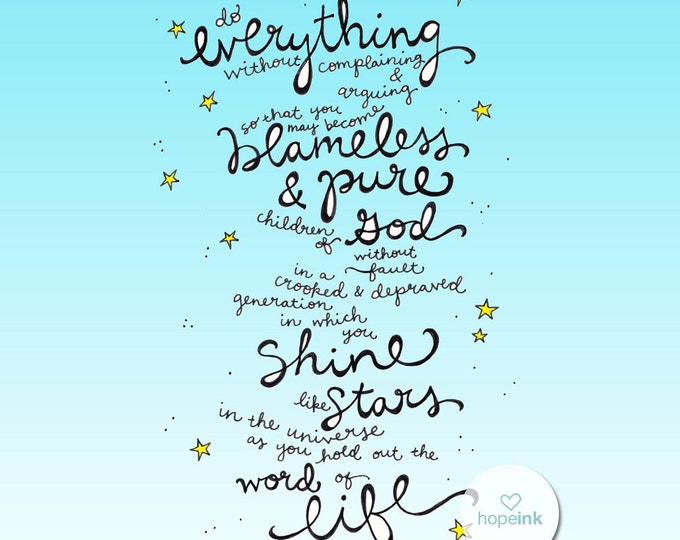 do
everything
without complaining
&
arguing
so that you
may become
blameless
& pure
children
of God
without
fault
in a
crooked & depraved
generation
in which
you
shine
like stars
in the universe
as you hold out the
word of
life
hopeink